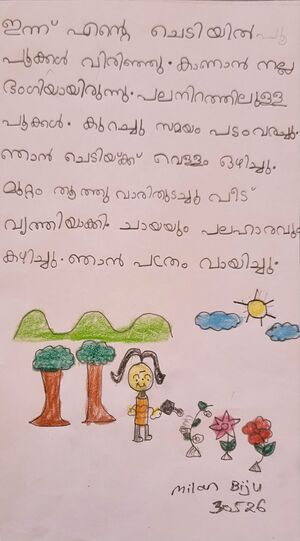 ഇന്ന് എന്റെ ചെടിയിൽ പൂ
പൂക്കൾ വിരിഞ്ഞു. കാണാൻ നല്ല
ഭംഗിയായിരുന്നു. പലനിറത്തിലുള്ള
പൂക്കൾ. കുറച്ചു സമയം പടംവരച്ചു.
ഞാൻ ചെടിയ്ക്ക് വെള്ളം ഒഴിച്ചു.
മുറ്റം തൂത്തു വാരിതുടച്ചു വീട്
വൃത്തിയാക്കി. ചായയും പലഹാരവും
കഴിച്ചു. ഞാൻ പത്രം വായിച്ചു.
Milan Biju